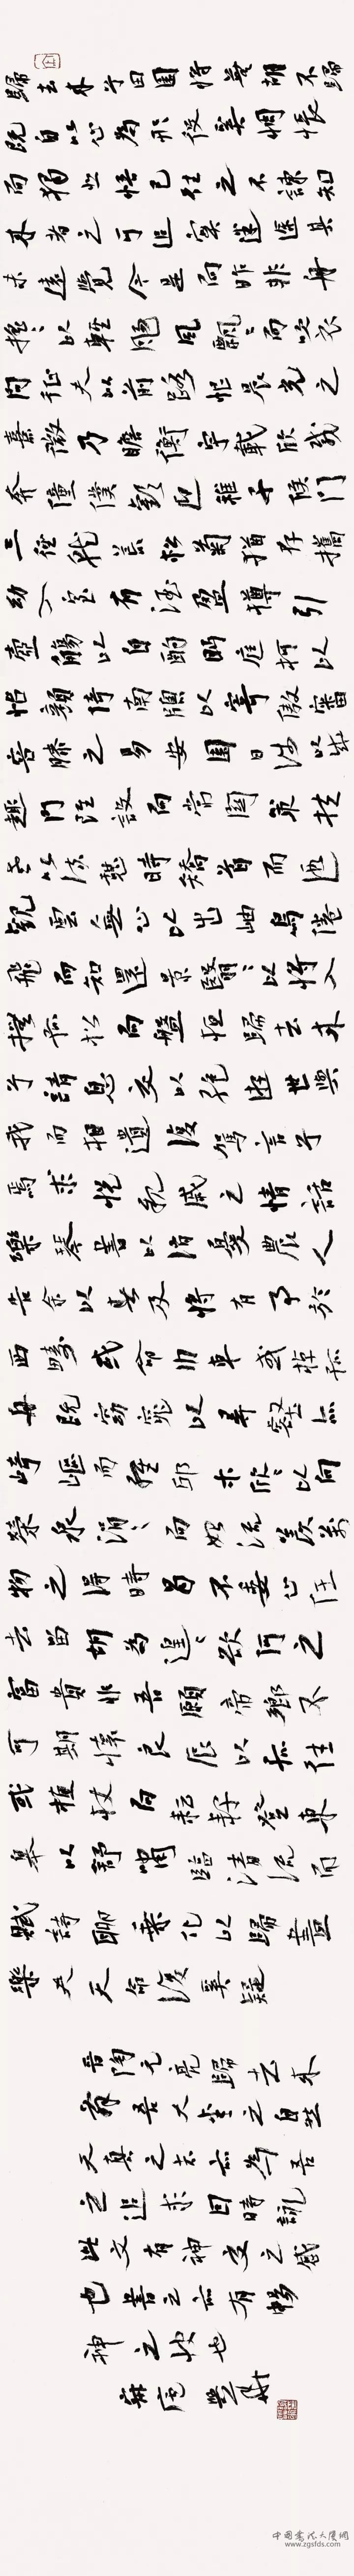 歸去来兮田園將蕪胡不歸
既自以心為形役奚惆悵
而獨悲悟已往之不諫知
来者之可追寔迷途其
未遠覺今是而昨非舟
摇〻以輕颺風飄〻而吹衣
問征夫以前路恨晨光之
熹微乃瞻衡宇載欣載
奔僮僕歡迎稚子候門
三徑就荒松菊猶存攜
幼入室有酒盈樽引
壺觴以自酌眄庭柯以
怡顏倚南牕以寄傲審
容膝之易安園日涉以成
趣門雖設而常關策扶
老以流憩時矯首而遐
觀雲無心以出岫鳥倦
飛而知還景翳〻以將入
撫孤松而盤桓歸去来
兮請息交以絶遊世與
我而相遺復駕言兮
焉求悦親戚之情話
樂琴書以消憂農人
告余以春及將有事於
西疇或命巾車或棹孤
舟既窈窕以尋壑亦
崎嶇而經邱木欣〻以向
榮泉涓〻而始流羡萬
物之得時曷不委心任
去留胡為遑〻欲何之
富貴非吾願帝鄉不
可期懷良辰以孤往
或植杖而耘耔登東
皋以舒嘯臨清流而
賦詩聊乘化以歸盡
樂夫天命復奚疑
晋陶元亮歸去来
辭吾大愛之自然
天真之志亦為吾
之追求日時詠
此文有神交之感
也書之亦有暢
神之快也
中国書法大厦網
www.zgsfds.com